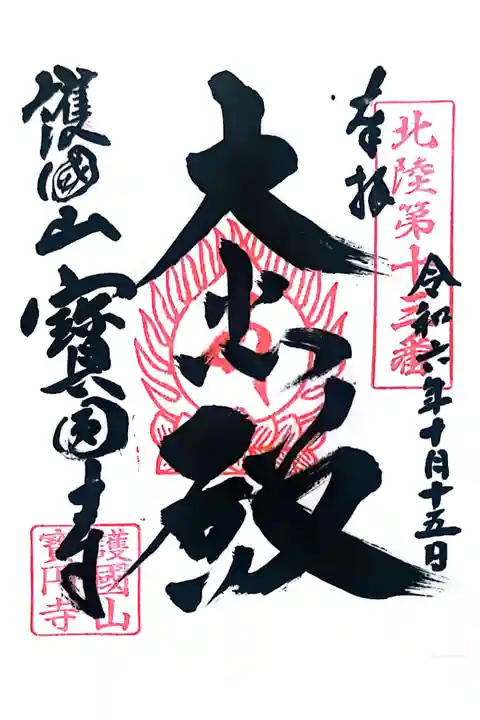 奉拝
北陸第十三番
令和六年十月十五日
大悲殿
護國山
寳圓寺
護國山
寳円寺